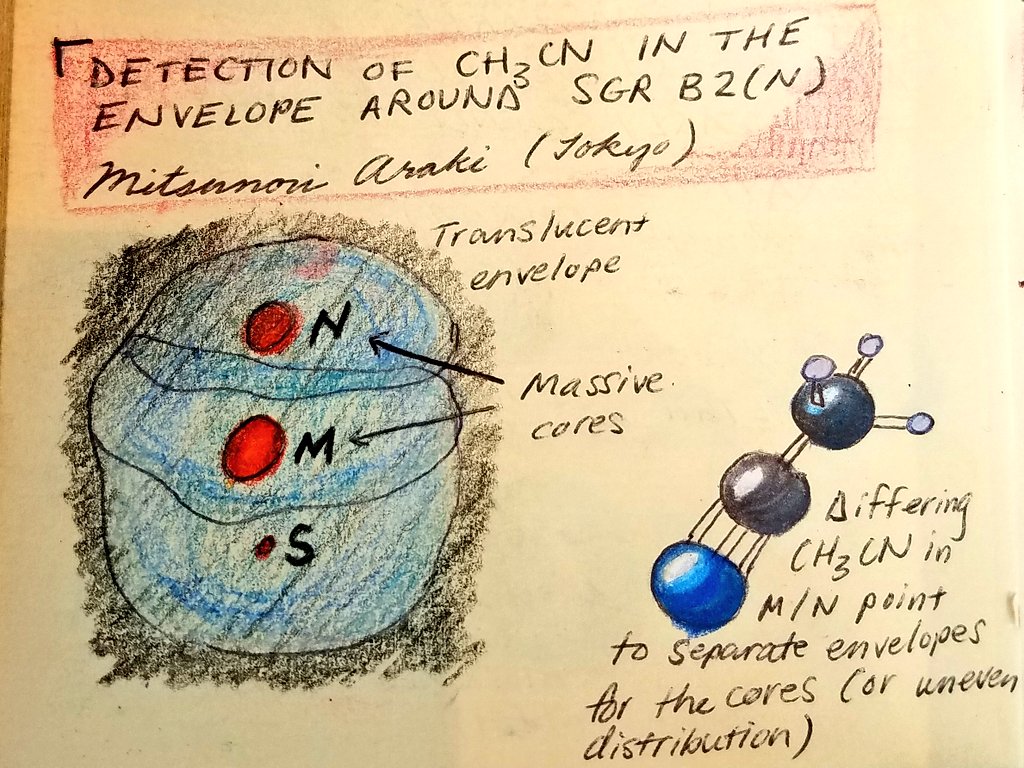 DETECTION OF CH₃CN IN THE
ENVELOPE AROUND SGR B2(N)
Mitsunori Araki (Tokyo)
Translucent
envelope
N
Massive
cores
M
S
Differing
CH₃CN in
M/N point
to separate envelopes
for the cores (or uneven
distribution)